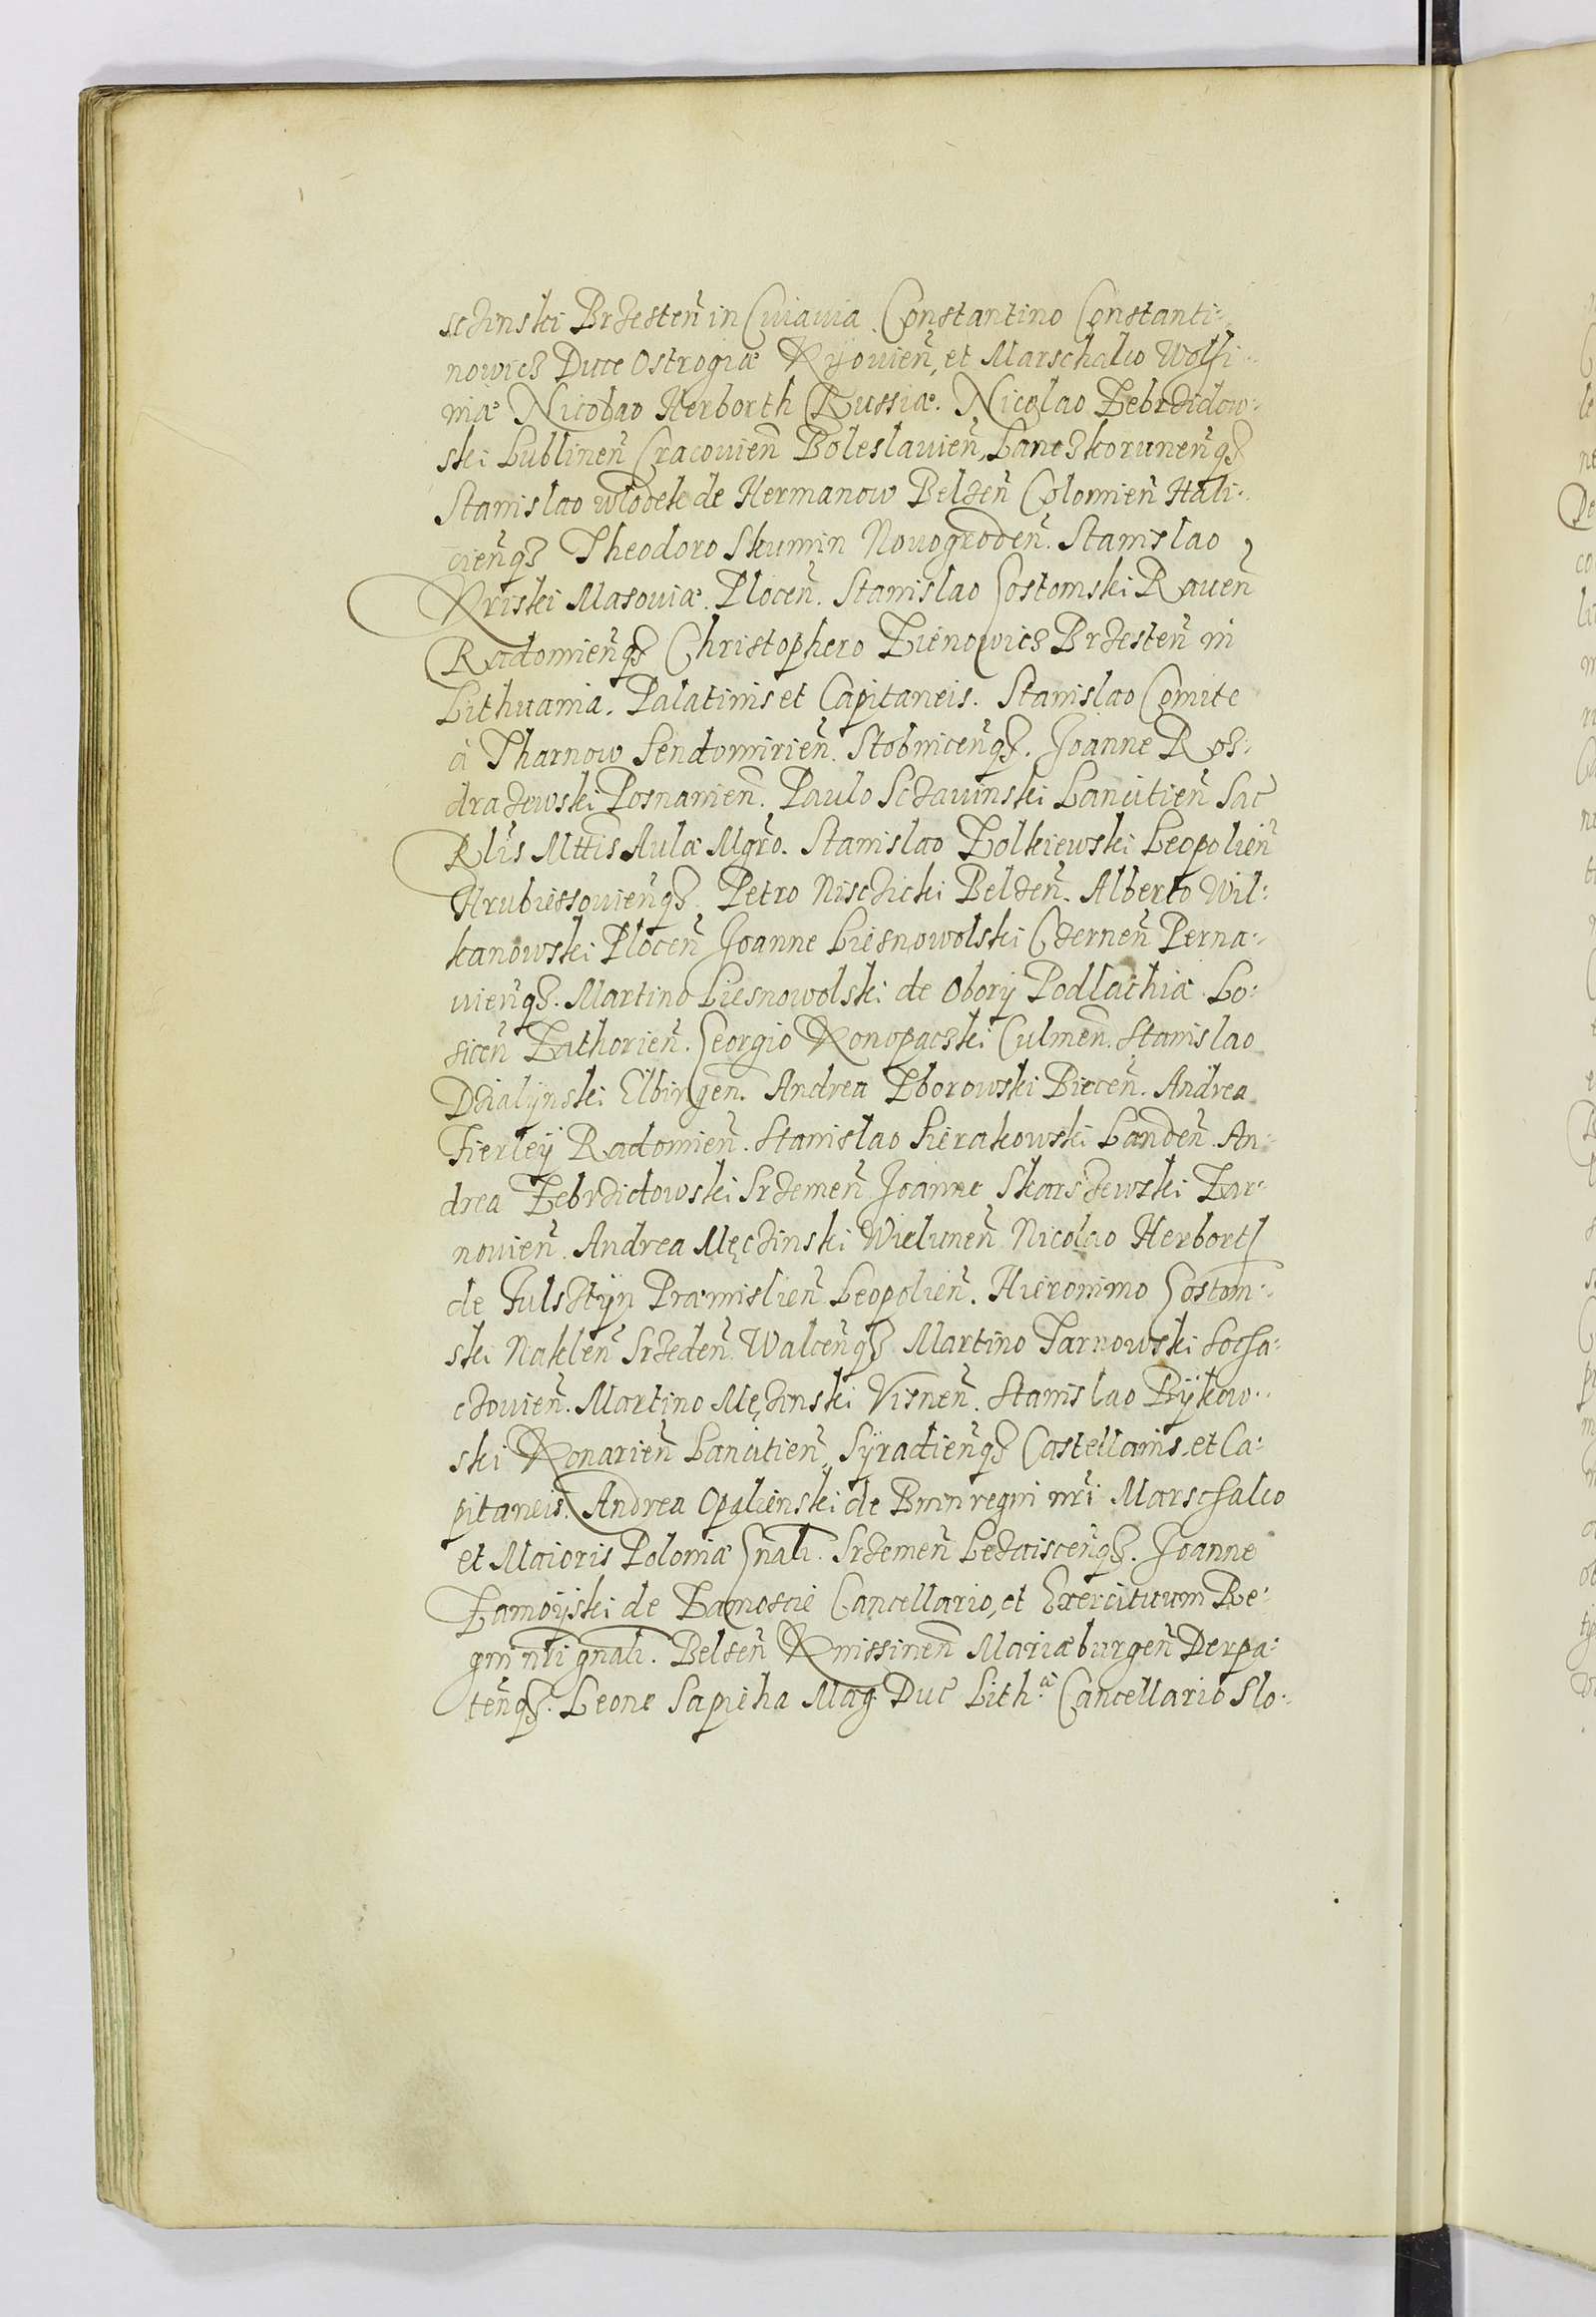 sczinski Brzesteñ in Cuiavia. Constantino Constanti:
nowicz Duce Ostrogiæ Kÿovieñ, et Marschalco Wolhi:
niæ Nicolao Herborth Russiæ. Nicolao Zebrzidow:
ski Lublineñ Cracovieñ Boleslavieñ, Lanczkoruneñqз
Stanislao wlodek de Hermanow Belzeñ Colomieñ Hali:
cieñqз Theodoro Skumin Novogrodeñ. Stanislao
Kriski Masoviæ. Ploceñ. Stanislao Gostomski Raveñ
Radomieñqз Christophero Zienowicz Brzesteñ in
Lithuania. Palatinis et Capitaneis. Stanislao Comite
à Tharnow Sendomirieñ. Stobniceñqз. Joanne Roz:
drazewski Posnanieñ. Paulo Sczavinski Lancitieñ Sac
Rlis Mttis Aulæ Mgro. Stanislao Zolkiewski Leopolieñ
Hrubiessovieñqз. Petro Nisczicki Belzeñ. Alberto Wil:
kanowski Ploceñ Joanne Liesnowolski Czerneñ Perna:
vieñqз. Martino Liesnowolski de Oborÿ Podlachiæ. Lo:
siceñ Zathorieñ. Georgio Konopaczki Culmeñ. Stanislao
Dzialÿnski Elbingeñ. Andrea Zborowski Bieceñ. Andrea
Fierleÿ Radomieñ. Stanislao Sierakowski Landeñ. An:
drea Zebrzidowski Srzemeñ Joanne Skarszewski Zar:
novieñ. Andrea Męczinski Wieluneñ Nicolao Herborth
de Fulsztÿn Præmislieñ Leopolieñ. Hieronimo Gostom:
ski Nakleñ Srzedeñ. Walceñqз Martino Tarnowski Socha:
czovieñ. Martino Męzinski Visneñ. Stanislao Bÿkow:
ski Konarieñ Lancitieñ, Sÿradieñqз Castellanis, et Ca:
pitaneis. Andrea Opalienski de Bnin regni nri Marschalco
et Maioris Poloniæ Gnali. Srzemeñ Lezaisceñqз. Joanne
Zamoÿski de Zamoscie Cancellario, et Exercituum Re:
gni nri gnali. Belzeñ Knissineñ Mariæburgeñ Derpa:
teñqз. Leone Sapieha Mag. Duc Lith.a Cancellario Slo: